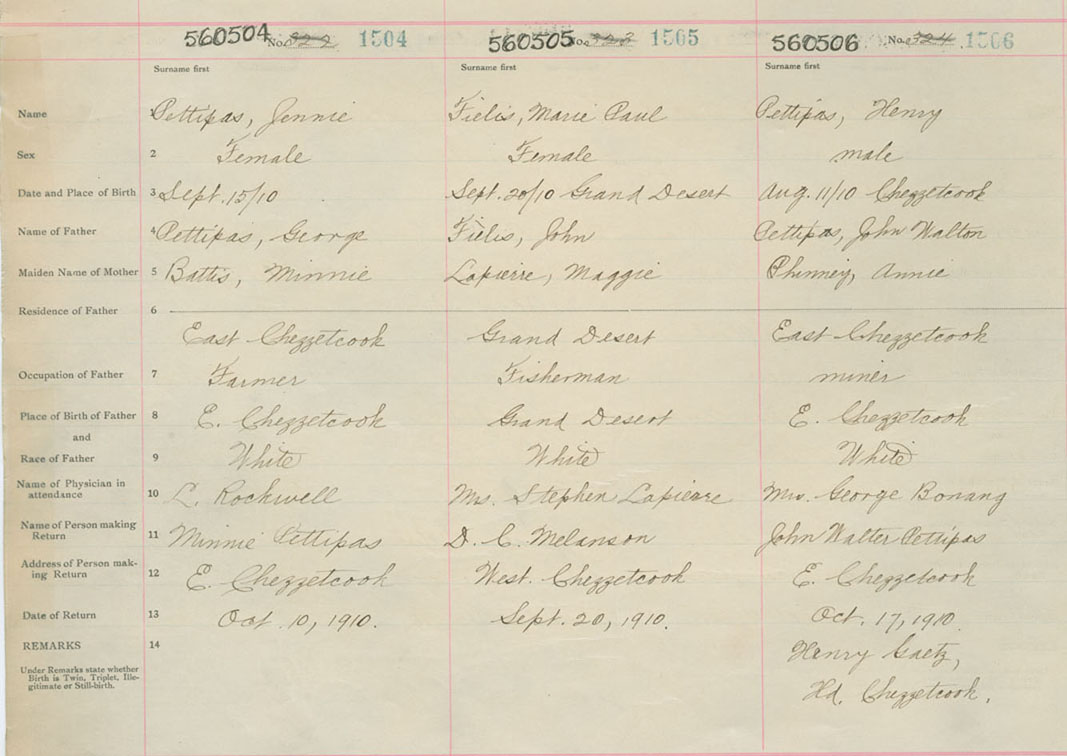 560504 No. 322 1504 560505 No. 323 1505 560506 No. 324 1506
Surname first Surname first Surname first
Name 1 Pettipas, Jennie Fielis, Marie Paul Pettipas, Henry
Sex 2 Female Female male
Date and Place of Birth 3 Sept. 15/10 Sept. 20/10 Grand Desert Aug. 11/10 Chezzetcook
Name of Father 4 Pettipas, George Fielis, John Pettipas, John Walton
Maiden Name of Mother 5 Battis, Minnie Lapierre, Maggie Phinney, Annie
Residence of Father 6
East Chezzetcook Grand Desert East Chezzetcook
Occupation of Father 7 Farmer Fisherman miner
Place of Birth of Father 8 E. Chezzetcook Grand Desert E. Chezzetcook
and
Race of Father 9 White White White
Name of Physician in
attendance 10 L. Rockwell Mrs. Stephen Lapierre Mrs. George Bonang
Name of Person making
Return 11 Minnie Pettipas D. C. Melanson John Walter Pettipas
Address of Person mak-
ing Return 12 E. Chezzetcook West. Chezzetcook E. Chezzetcook
Date of Return 13 Oct. 10, 1910. Sept. 20, 1910. Oct. 17, 1910
REMARKS 14 Henry Gaetz,
Under Remarks state whether
Birth is Twin, Triplet, Ille-
gitimate or Still-birth.
Hd. Chezzetcook.